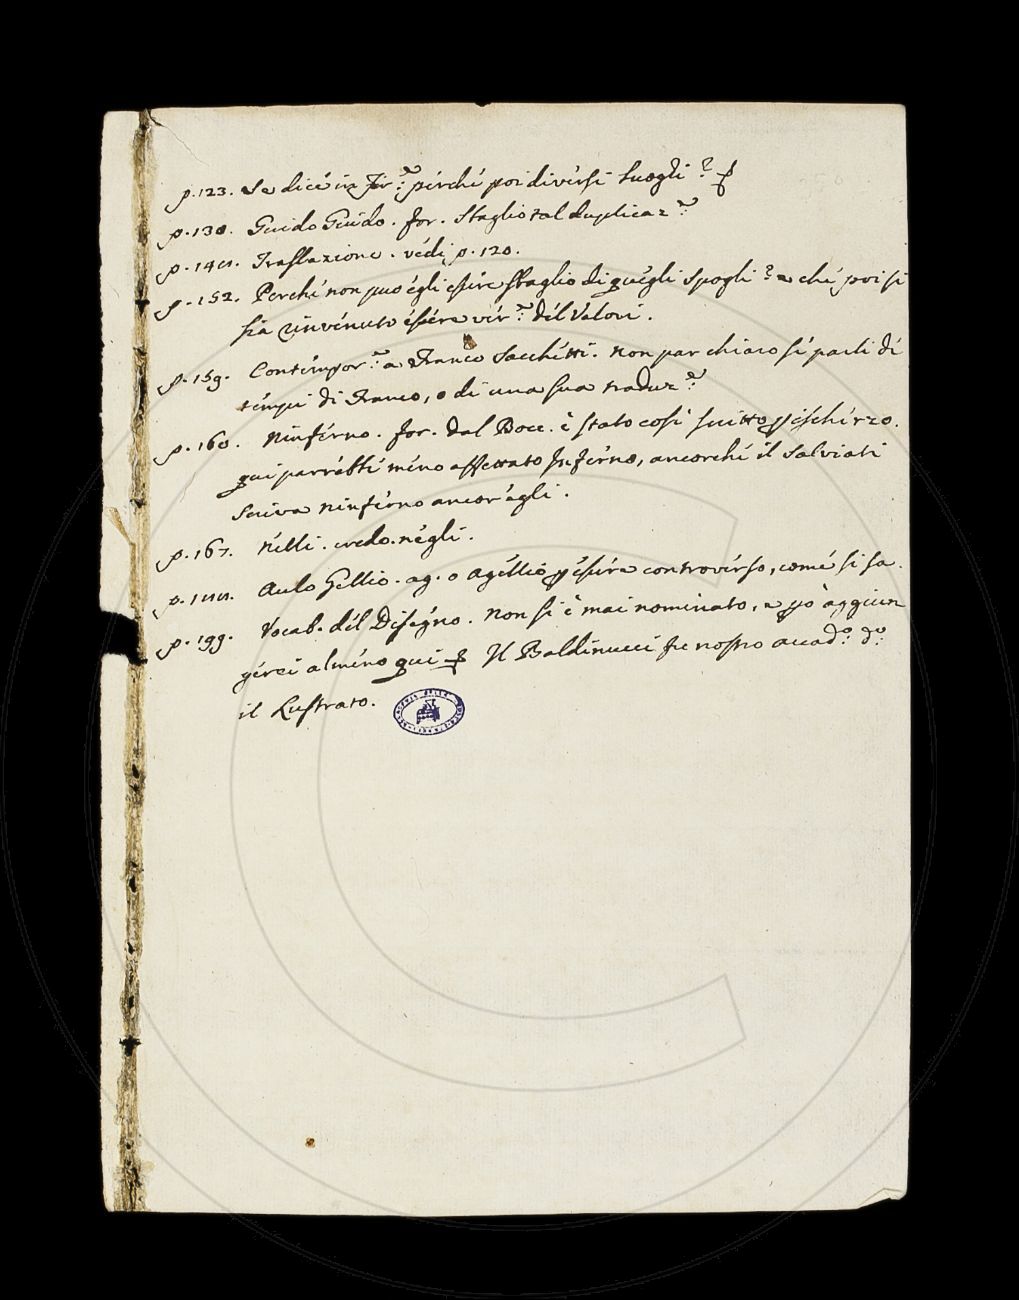 p. 123. Se dice in Fir.e perché poi diversi luoghi?
p. 130. Guido Guido. for. sbaglio tal duplicaz.e
p. 144. Traslazione. védi p. 120.
p. 152. Perché non può egli essere sbaglio di quegli Spogli? e che poi si
sia rinvenuto éssere vér.e dél Valori.
p. 159. Contempor.e a Franco Sacchetti. Non par chiaro se parli di
témpi di Franco, o di una sua traduz.e
p. 160. Ninférno. for. dal Bocc. è stato cosi scritto p ischérzo.
qui parrébbe méno affettato Inférno, ancorché il Salviati
scriva ninférno ancor égli.
p. 167. Nélli. credo. négli.
p. 144. Aulo Gellio. ag. o Agéllio p éssere controvérso, come si sa.
p. 199. Vocab. dél Diségno. Non si è mai nominato, e può aggiun
gérci alméno qui Il Baldinucci fu nostro accad.o d.o
il Lustrato.